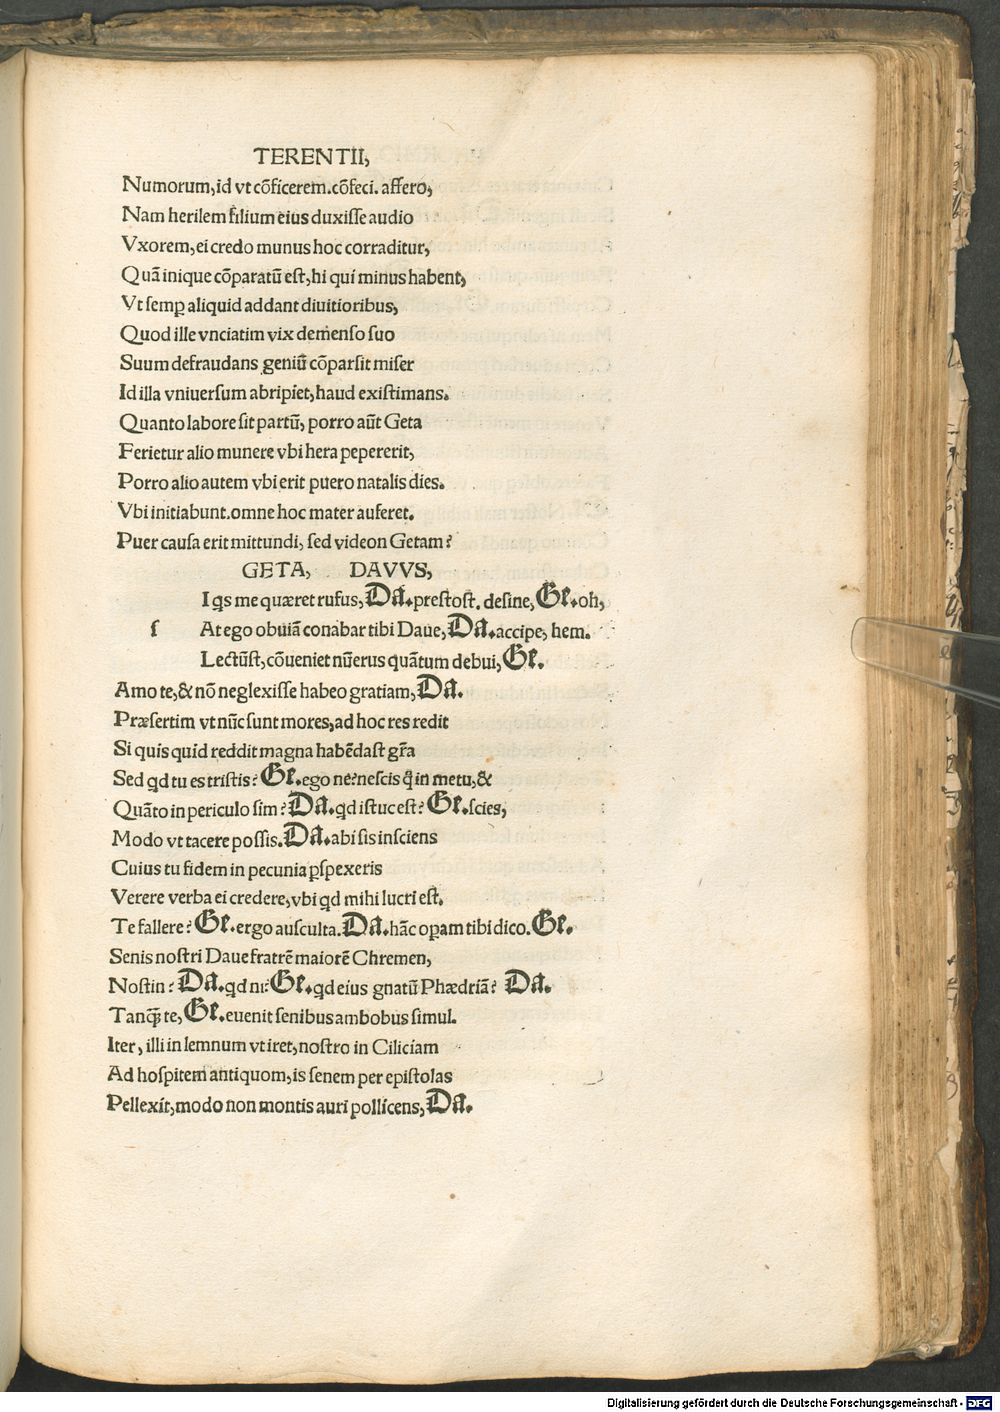 TERENTII,
Numorum, id vt cõficerem. cõfeci. affero,
Nam herilem filium eius duxisse audio
Vxorem, ei credo munus hoc corraditur,
Quã inique cõparatũ est, hi qui minus habent,
Vt semꝑ aliquid addant diuitioribus,
Quod ille vnciatim vix demenso suo
Suum defraudans geniũ cõparsit miser
Id illa vniuersum abripiet, haud existimans.
Quanto labore sit partũ, porro aũt Geta
Ferietur alio munere vbi hera pepererit,
Porro alio autem vbi erit puero natalis dies.
Vbi initiabunt. omne hoc mater auferet.
Puer causa erit mittundi, sed videon Getam?
GETA, DAVVS,
I qs me quæret rufus, Da. prestost. desine, Ge. oh,
s At ego obuiã conabar tibi Daue, Da. accipe, hem.
Lectũst, cõueniet nũerus quãtum debui, Ge.
Amo te, & nõ neglexisse habeo gratiam, Da.
Præsertim vt nũc sunt mores, ad hoc res redit
Si quis quid reddit magna habẽdast gr̃a
Sed qd tu es tristis? Ge. ego ne? nescis q̃ in metu, &
Quãto in periculo sim? Da. qd istuc est? Ge. scies,
Modo vt tacere possis. Da. abi sis insciens
Cuius tu fidem in pecunia ꝑspexeris
Verere verba ei credere, vbi qd mihi lucri est.
Te fallere? Ge. ergo ausculta. Da. hãc opam tibi dico. Ge.
Senis nostri Daue fratrẽ maiorẽ Chremen,
Nostin? Da. qd ni? Ge. qd eius gnatũ Phædriã? Da.
Tanq̃ te, Ge. euenit senibus ambobus simul.
Iter, illi in lemnum vt iret, nostro in Ciliciam
Ad hospitem antiquom, is senem per epistolas
Pellexit, modo non montis auri pollicens, Da.
Digitalisierung gefördert durch die Deutsche Forschungsgemeinschaft - DFG